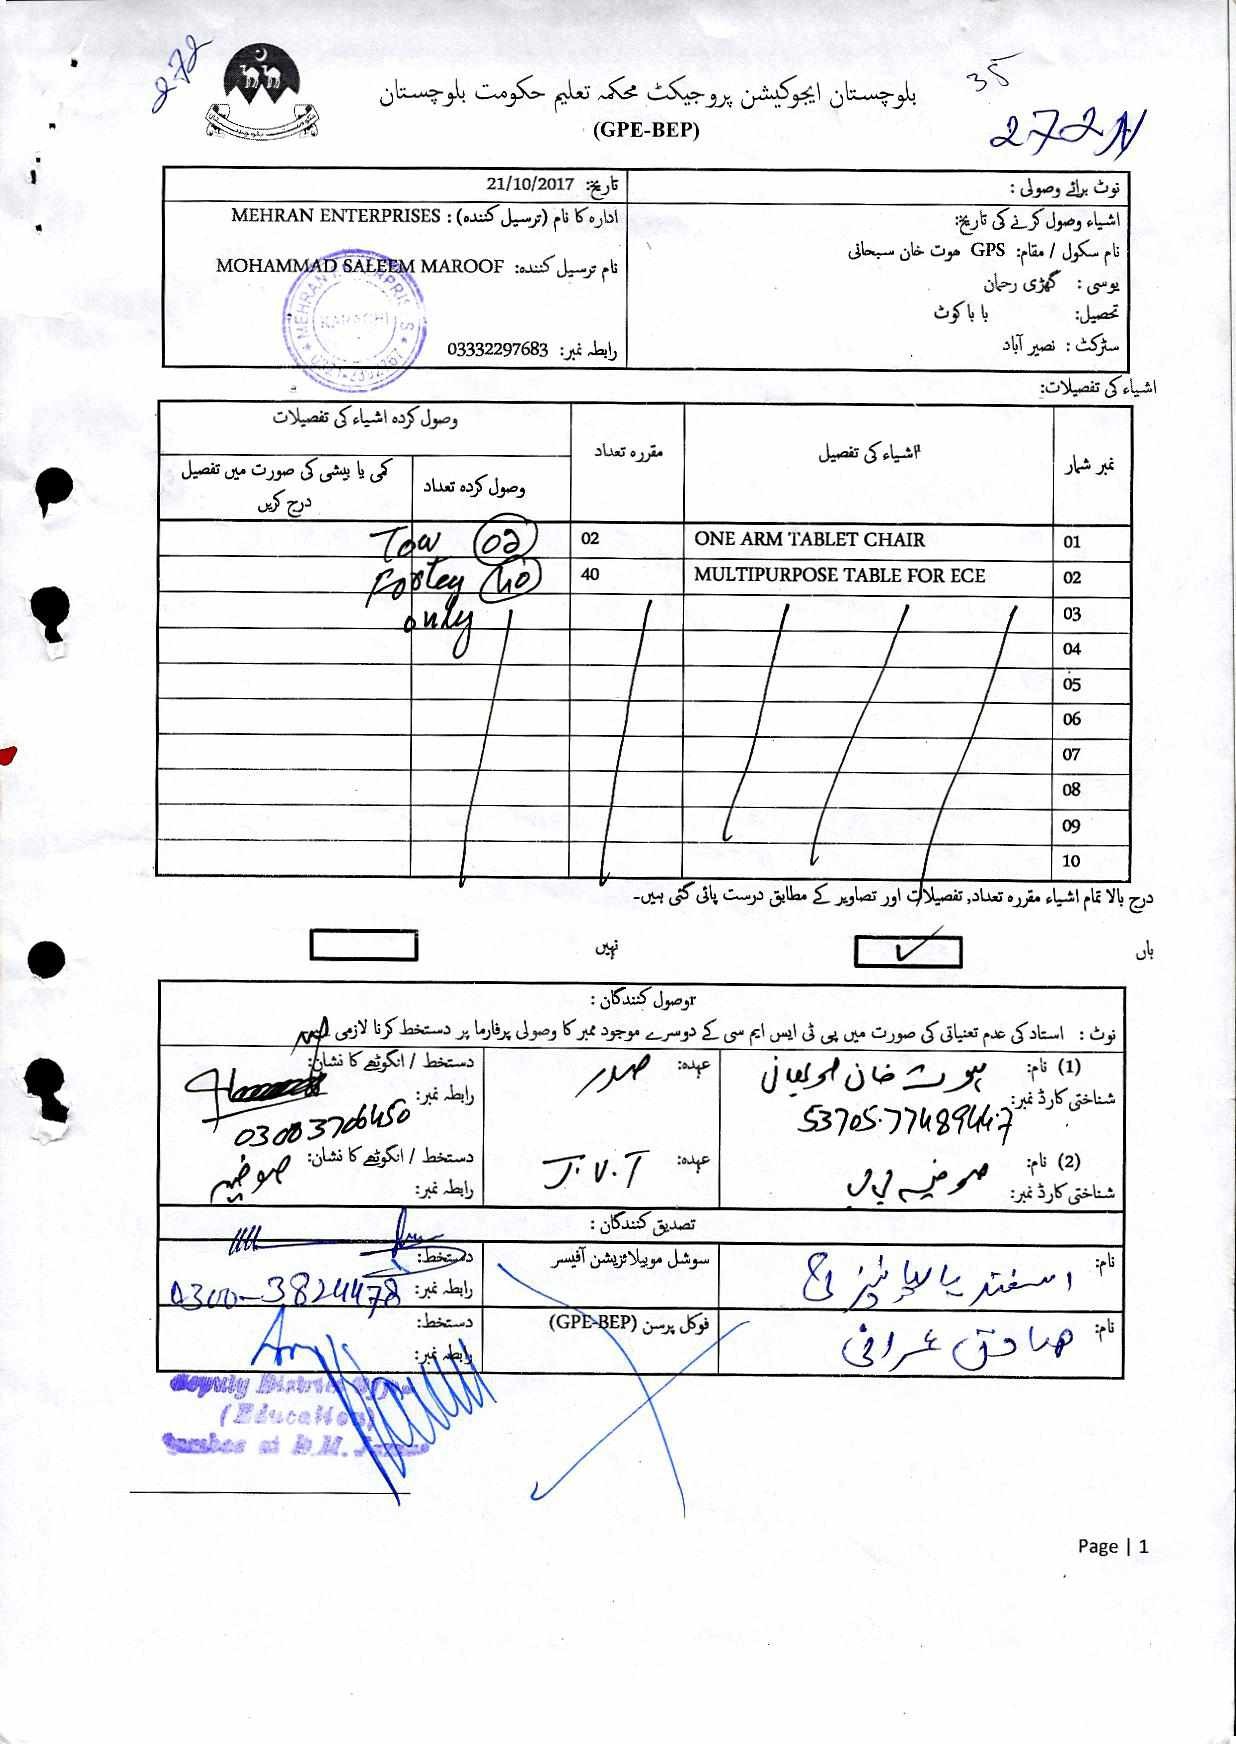 272
35
بلوچستان ایجوکیشن پروجیکٹ محکمہ تعلیم حکومت بلوچستان
(GPE-BEP)
272 N
نوٹ برائے وصولی :
تاریخ: 21/10/2017
اشیاء وصول کرنے کی تاریخ:
ادارہ کا نام (ترسیل کنندہ) : MEHRAN ENTERPRISES
نام سکول / مقام: GPS موت خان سبحانی
نام ترسیل کنندہ: MOHAMMAD SALEEM MAROOF
یوسی : گھڑی رحمان
تحصیل: بابا کوٹ
سٹرکٹ : نصیر آباد
رابطہ نمبر: 03332297683
KARACHI
اشیاء کی تفصیلات:
نمبر شمار
اشیاء کی تفصیل
مقررہ تعداد
وصول کردہ اشیاء کی تفصیلات
وصول کردہ تعداد
کمی یا بیشی کی صورت میں تفصیل درج کریں
01 ONE ARM TABLET CHAIR 02 02 Tow
02 MULTIPURPOSE TABLE FOR ECE 40 40 Fortey
03 only
04
05
06
07
08
09
10
درج بالا تمام اشیاء مقررہ تعداد, تفصیلات اور تصاویر کے مطابق درست پائی گئی ہیں۔
ہاں ✓ نہیں
وصول کنندگان :
نوٹ : استاد کی عدم تعنیاتی کی صورت میں پی ٹی ایس ایم سی کے دوسرے موجود ممبر کا وصولی پرفارما پر دستخط کرنا لازمی
(1) نام: عہدہ: صدر دستخط / انگوٹھے کا نشان:
شناختی کارڈ نمبر: 53705.7748944.7 رابطہ نمبر:
03003706450
(2) نام: عہدہ: J.V.T دستخط / انگوٹھے کا نشان:
شناختی کارڈ نمبر: رابطہ نمبر:
تصدیق کنندگان :
نام: سوشل موبیلائزیشن آفیسر دستخط:
رابطہ نمبر: 0300-3824478
نام: صادق عمرانی فوکل پرسن (GPE-BEP) دستخط:
رابطہ نمبر:
Deputy District
(Education)
Page | 1